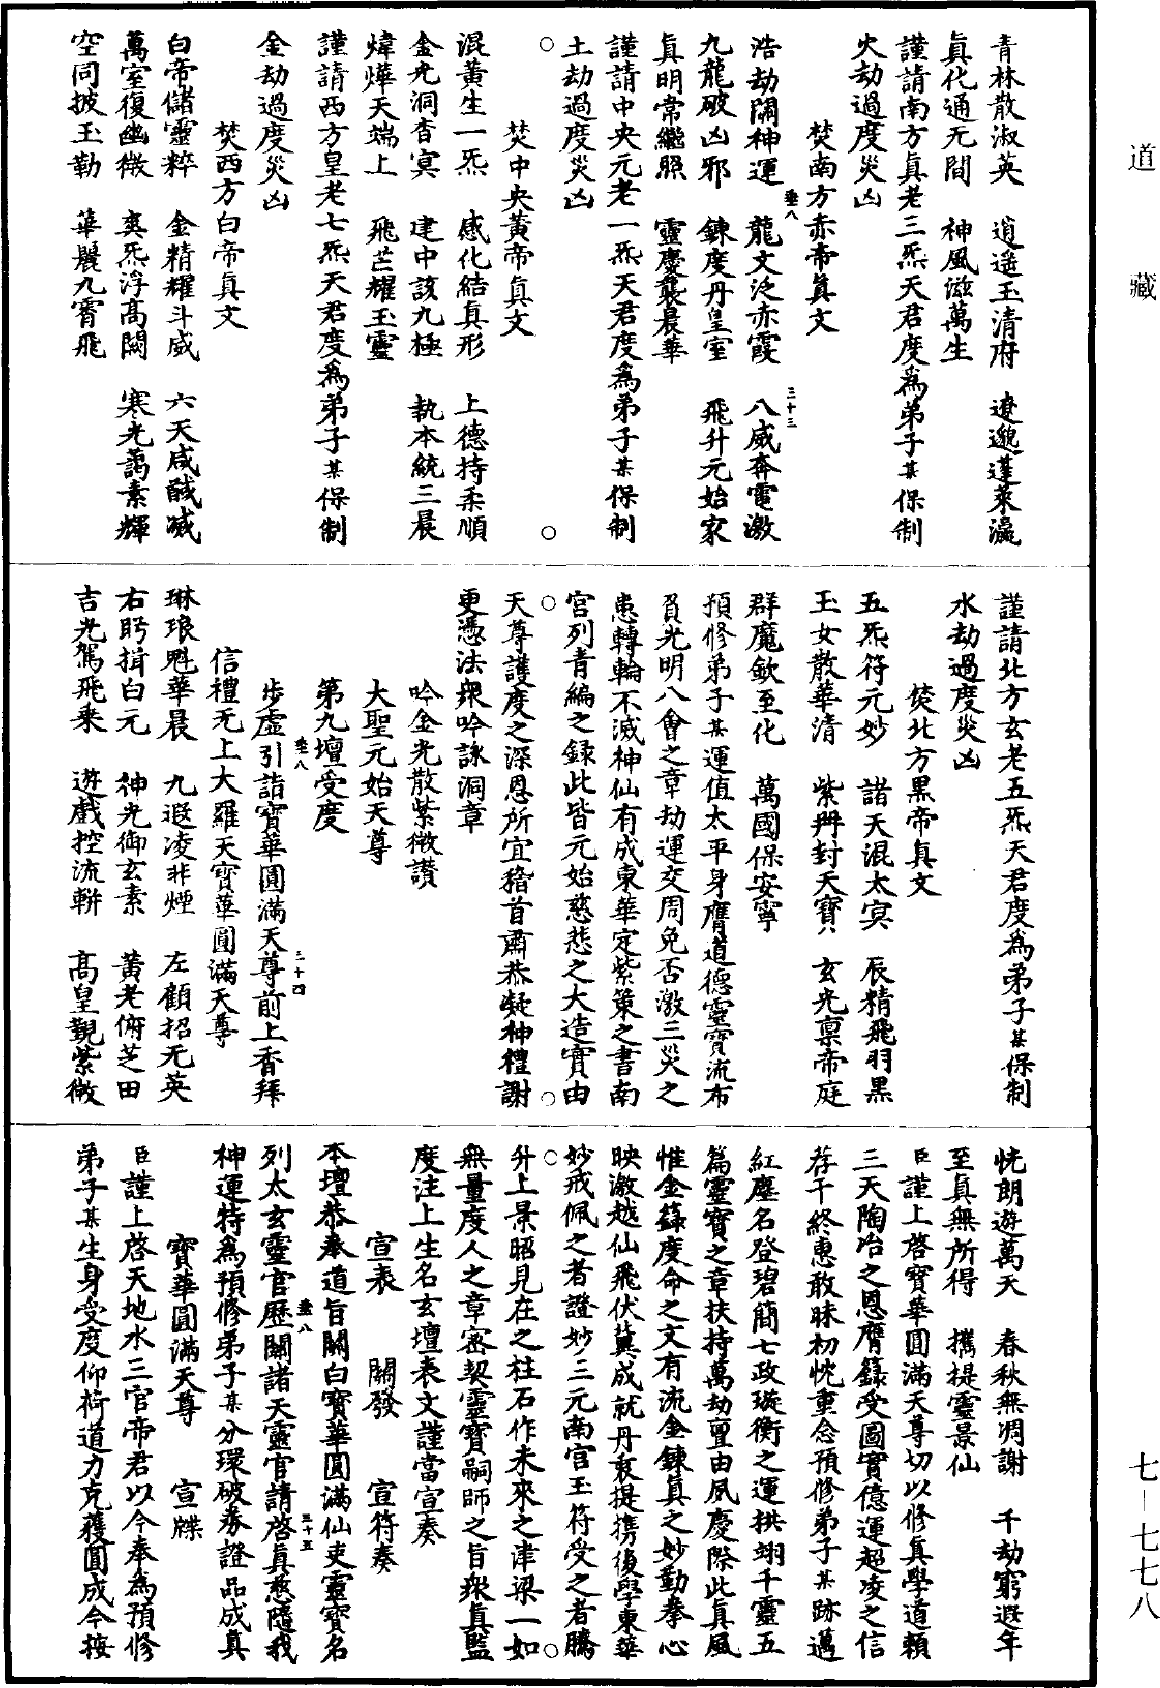 道藏
青林散淑英　逍遥玉清府　遼邈蓬萊瀛
眞化通无間　神風滋萬生
謹請南方眞老三炁天君度爲弟子某保制
火劫過度災凶
焚南方赤帝眞文
浩劫開神運　龍文泛赤霞　八威奔電激
九龍破凶邪　鍊度丹皇室　飛升元始家
眞明常繼照　靈慶襲晨華
謹請中央元老一炁天君度爲弟子某保制
土劫過度災凶
焚中央黃帝眞文
混黃生一炁　感化結眞形　上德持柔順
金光洞杳冥　建中該九極　執本統三晨
煒燁天端上　飛芒耀玉靈
謹請西方皇老七炁天君度爲弟子某保制
金劫過度災凶
焚西方白帝眞文
白帝儲靈粹　金精耀斗威　六天咸馘滅
萬室復幽微　爽炁浮高闕　寒光藹素輝
空同披玉勒　華麗九霄飛
謹請北方玄老五炁天君度爲弟子某保制
水劫過度災凶
焚北方黑帝眞文
五炁符元妙　諸天混太冥　辰精飛羽黑
玉女散華清　紫冊封天寶　玄光禀帝庭
群魔欽至化　萬國保安寧
預修弟子某運值太平身膺道德靈寶流布
資光明八會之章劫運交周免否激三災之
患轉輪不滅神仙有成東華定紫策之書南
宮列青編之録此皆元始慈悲之大造實由
天尊護度之深恩所宜稽首肅恭凝神禮謝
更憑法衆吟詠洞章
吟金光散紫微讚
大聖元始天尊
第九壇受度
步虛引詣寶華圓滿天尊前上香拜
信禮无上大羅天寶華圓滿天尊
琳琅魁華晨　九遐凌非煙　左顧招无英
右眄揖白元　神光御玄素　黃老俯芝田
吉光駕飛乘　遊戲控流軿　高皇觀紫微
恍朗遊萬天　春秋無凋謝　千劫窮遐年
至眞無所得　攜提靈景仙
臣謹上啓寶華圓滿天尊切以修眞學道賴
三天陶冶之恩膺籙受圖實億運超凌之信
荐干終惠敢昧初忱重念預修弟子某跡邁
紅塵名登碧簡七政璇衡之運拱翊千靈五
篇靈寶之章扶持萬劫亶由夙慶際此眞風
惟金籙度命之文有流金鍊眞之妙勤拳心
映激越仙飛伏冀成就丹衷提携後學東華
妙戒佩之者證妙三元南宮玉符受之者騰
升上景昭見在之柱石作未來之津梁一如
無量度人之章密契靈寶嗣師之旨衆眞監
度注上生名玄壇表文謹當宣奏
宣表　關發　宣符奏
本壇恭奉道旨關白寶華圓滿仙吏靈寶名
列太玄靈官歷關諸天靈官請啓眞慈隨我
神運特爲預修弟子某分環破券證品成眞
寶華圓滿天尊　宣牒
臣謹上啓天地水三官帝君以今奉爲預修
弟子某生身受度仰荷道力克獲圓成今按
七—七七八